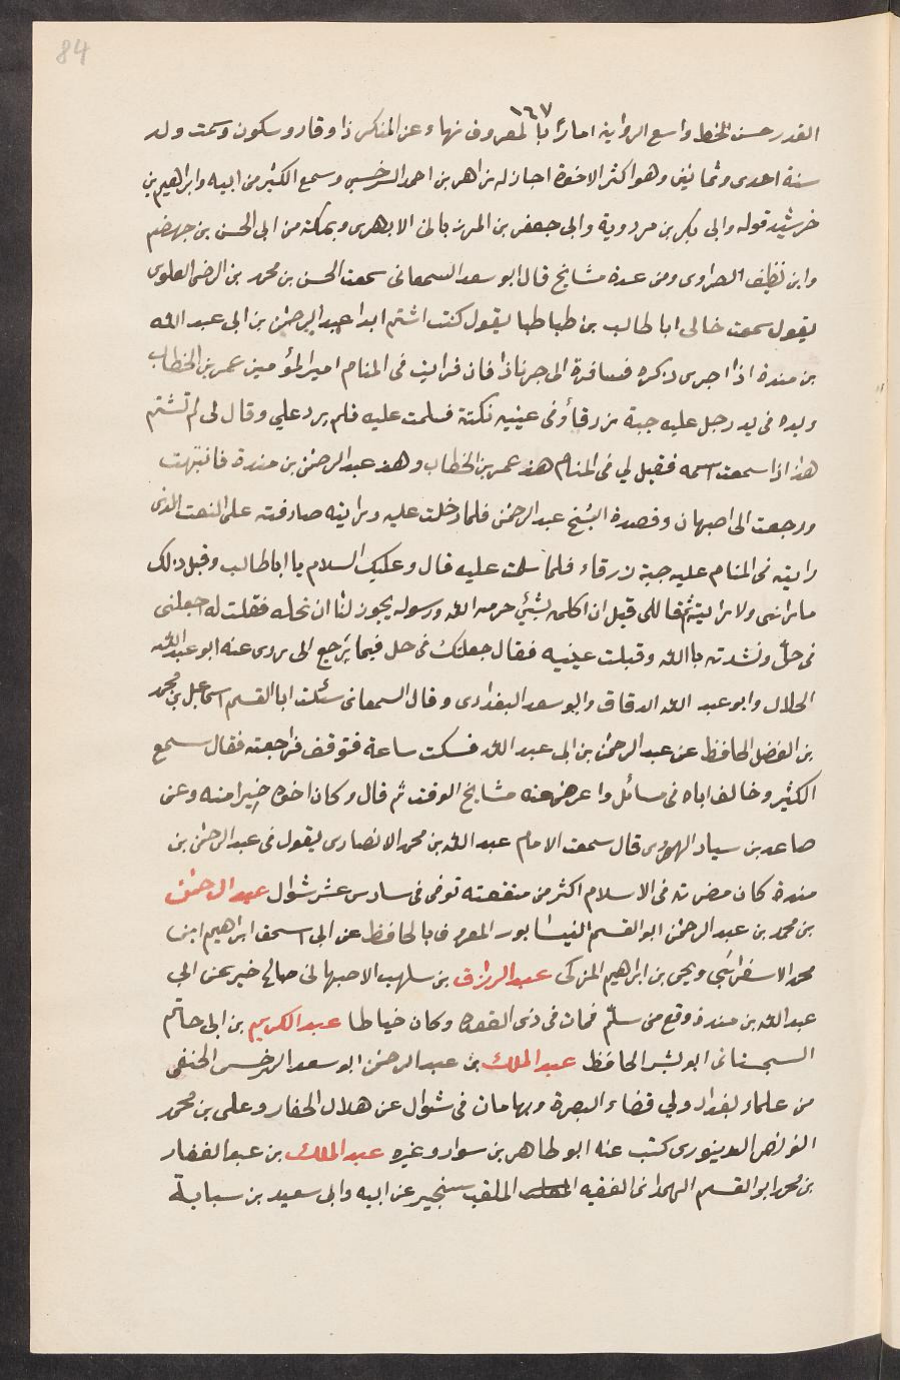 84
١٦٧
القدر حسن الخط واسع الرواية امارًا بالمعروف نهاء عن المنكر ذا وقار وسكون وسمت ولد
سنة احدى وثمانين وهو اكثر الاخوة اجاز له زاهر بن احمد السرخسي وسمع الكثير من ابيه وابراهيم بن
خرشيد قوله وابى بكر بن مردوية وابى جعفر بن المرزبان الابهرى وبمكة من ابى الحسن بن جهضم
وابن نظيف الـ ومن عدة مشايخ قال ابو سعد السمعانى سمعت الحسن بن محمد بن الرضى العلوى
يقول سمعت خالى ابا طالب بن طباطبا يقول كنت اشتم ابدا عبد الرحمٰن بن ابى عبد الله
بن مندة اذا جرى ذكره فسافرة الى جرباذا فان فرايت فى المنام امير المؤمين عمر بن الخطاب
ويده فى يد رجل عليه جبة زرقأ وفى عينيه نكتة فسلمت عليه فلم يرد علي وقال لى لم تشتم
هذا اذا سمعت اسمه فقيل لي فى المنام هذ عمر بن الخطاب وهذ عبد الرحمٰن بن مندة فانتبهت
ورجعت الى اصبهان وقصدة الشيخ عبد الرحمٰن فلما دخلت عليه ورايته صادفته على النعت الذى
رايته فى المنام عليه جبة زرقاء فلما سلمت عليه قال وعليك السلام يا ابا طالب وقبل ذلك
ما رانى ولا رايته ثم قال لى قبل ان اكلمه بشئ حرمه الله ورسوله يجوز لنا ان نحله فقلت له اجعلنى
فى حلّ ونشدته بالله وقبلت عينيه فقال جعلتك فى حل فيما يرجع الى روى عنه ابو عبد الله
الحلال وابو عبد الله الدقاق وابو سعد البغدادى وقال السمعانى سئلت ابا القسم اسماعيل بن محمد
بن الفضل الحافظ عن عبد الرحمٰن بن ابى عبد الله فسكت ساعة فتوقف فراجعته فقال سمع
الكثير وخالف اباه فى مسائل واعرض عنه مشايخ الوقت ثم قال وكان اخوه خيرا منه وعن
صاعد بن سيار الهروى قال سمعت الامام عبد الله بن محمد الانصارى يقول فى عبد الرحمٰن بن
مندة كان مضرته فى الاسلام اكثر من منفعته توفى فى سادس عشر شوال عبد الرحمٰن
بن محمد بن عبد الرحمٰن ابو القسم النيسابور المعروف بالحافظ عن ابى اسحق ابراهيم ابن
محمد الاسفرائنى ويحى بن ابراهيم المزكى عبد الرزاق بن سلهب الاصبهانى صالح خير عن ابى
عبد الله بن مندة وقع من سلّم فمات فى ذى القعدة وكان خياطا عبد الكريم بن ابى حاتم
السجستانى ابو بشر الحافظ عبد الملك بن عبد الرحمٰن ابو سعد السرخسى الحنفى
من علماء بغداد ولي قضاء البصرة وبها مات فى شوال عن هلال الحفار وعلى بن محمد
الدينورى كتب عنه ابو طاهر بن سوار وغيره عبد الملك بن عبد الغفار
بن محمد ابو القسم الهمدانى الفقيه الملقب سنجير عن ابيه وابى سعيد بن سبابة